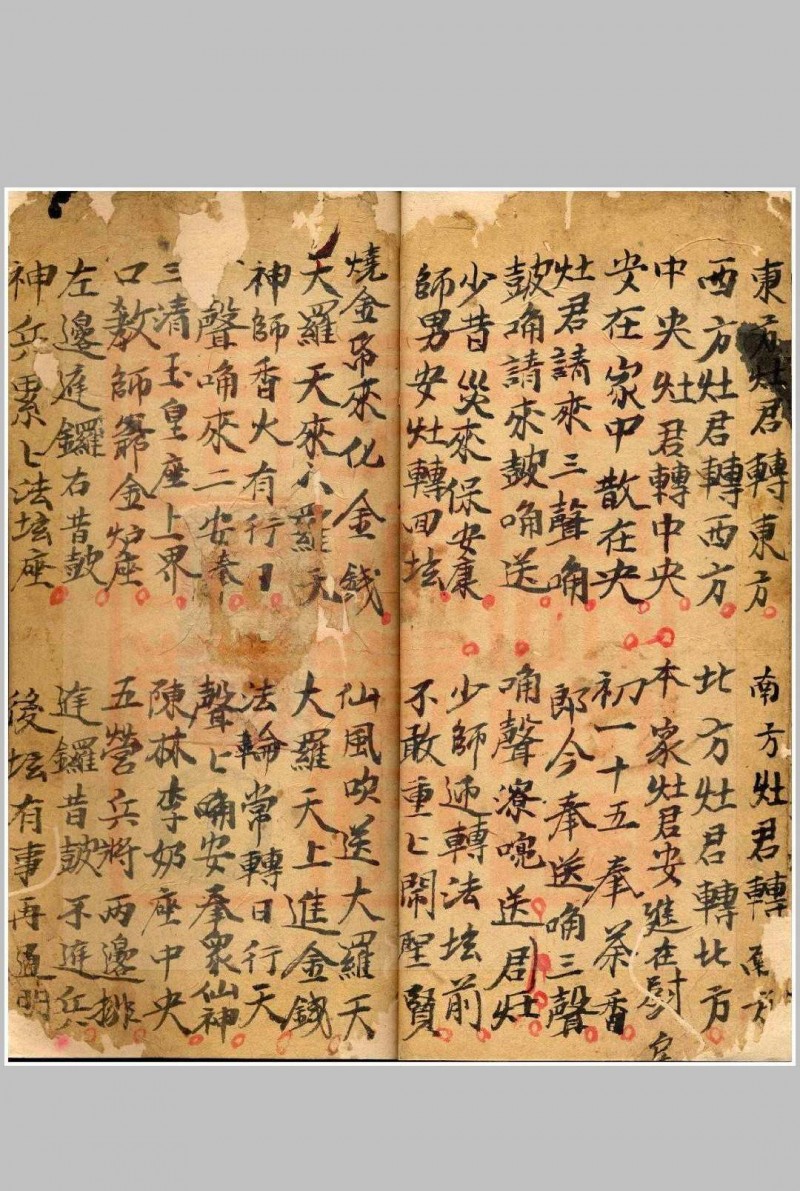 東方灶君轉東方 南方灶君轉南方
西方灶君轉西方 北方灶君轉北方
中央灶君轉中央 本家灶君安進在厨
安在家中散在央 初一十五奉茶香
灶君請來三聲𠰌 郎今奉送𠰌三聲
鼓𠰌請來鼓𠰌送 𠰌聲遼喨送君灶
少昔災來保安康 少師迎轉法坛前
師男安灶轉囬坛 不敢重〻鬧聖賢
燒金帋來化金錢 仙風吹送大羅天
大羅天來大羅天 大羅天上進金錢
神師香火有行日 法輪常轉日行天
聲𠰌來二安奉 聲〻𠰌安奉衆仙神
三清玉皇座上界 陳林李奶座中央
口教師爺金炉座 五營兵將兩邊排
左邊進鑼右昔鼓 進鑼昔鼓不進兵
神兵累〻法坛座 後坛有事再通明